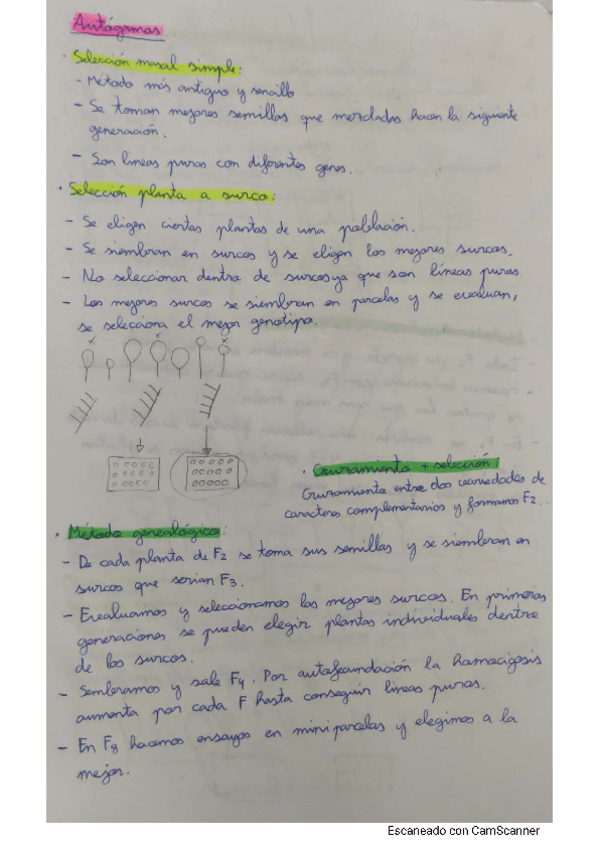 Autógamas
· Selección masal simple:
- Método más antiguo y sencillo
- Se toman mejores semillas que mezcladas hacen la siguiente
generación.
- Son lineas puras con diferentes genes.
· Selección planta a surco:
- Se eligen ciertas plantas de una población.
- Se siembran en surcos y se eligen los mejores surcos.
- No seleccionar dentro de surcos ya que son líneas puras
- Los mejores surcos se siembran en parcelas y se evaluan,
se selecciona el mejor genotipo.
· Cruzamiento + selección
Cruzamiento entre dos variedades de
caracteres complementarios y formamos F2...
· Método genealógico:
- De cada planta de F2 se toma sus semillas y se siembran en
surcos que serian F3.
- Evaluamos y seleccionamos los mejores surcos. En primeras
generaciones se pueden elegir plantas individuales dentro
de los surcos.
- Sembramos y sale F4. Por autofecundación la homocigosis
aumenta por cada F hasta conseguir lineas puras.
- En F8 hacemos ensayos en miniparcelas y elegimos a la
mejor.
Escaneado con CamScanner